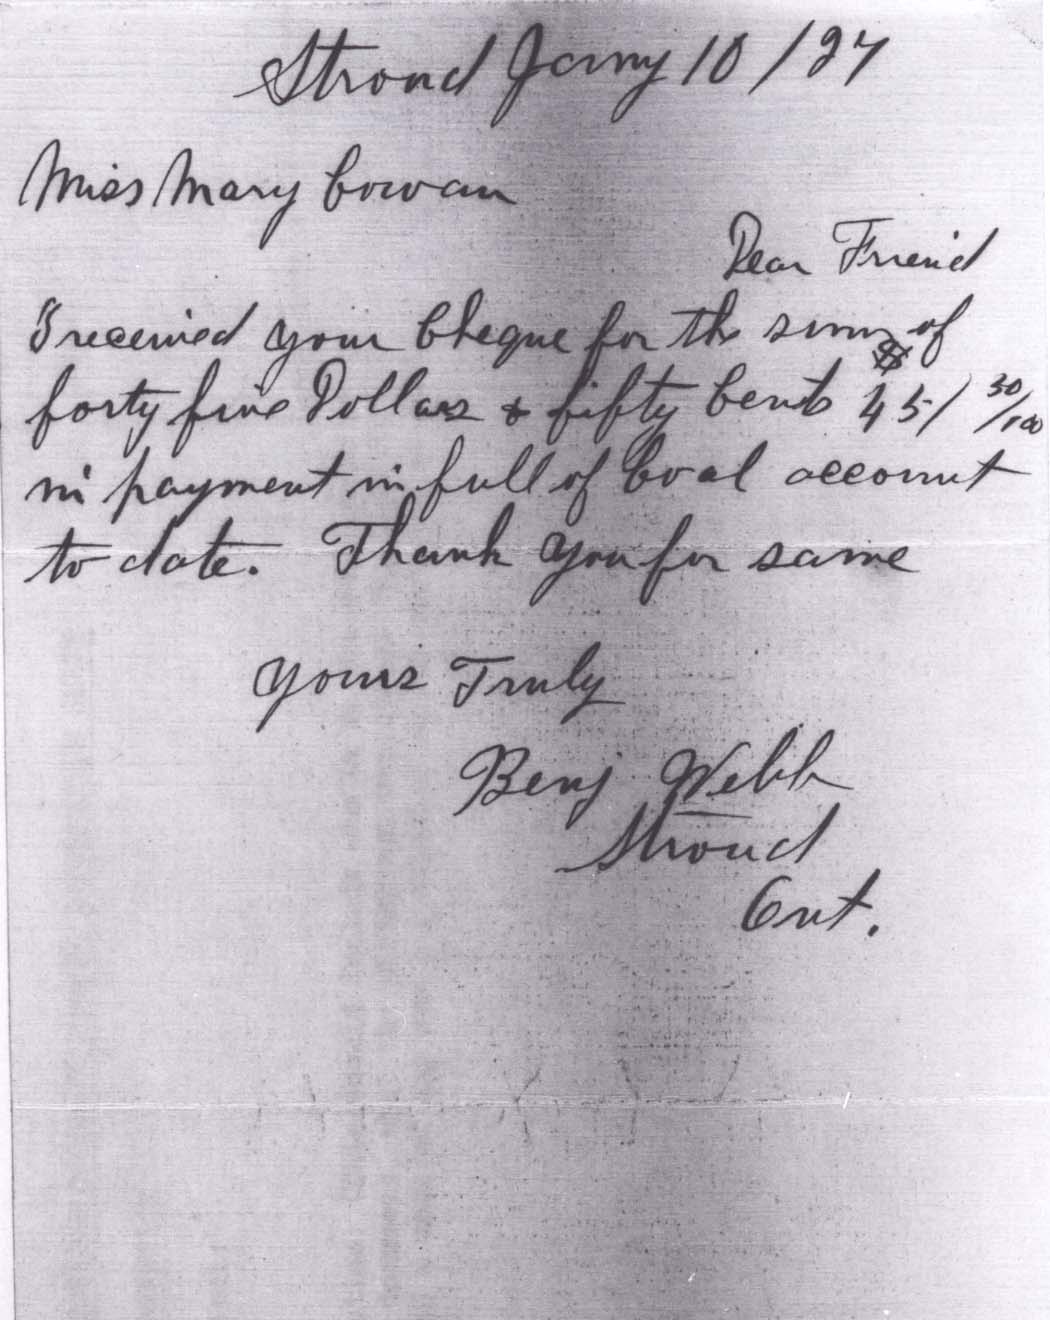 Stroud Jany 10/27
Miss Mary Cowan
Dear Friend
I received your Cheque for the sum of
forty five Dollars & fifty Cents $45/ 50/100
in payment in full of Coal account
to date. Thank you for same
Yours Truly
Benj Webb
Stroud
Ont.